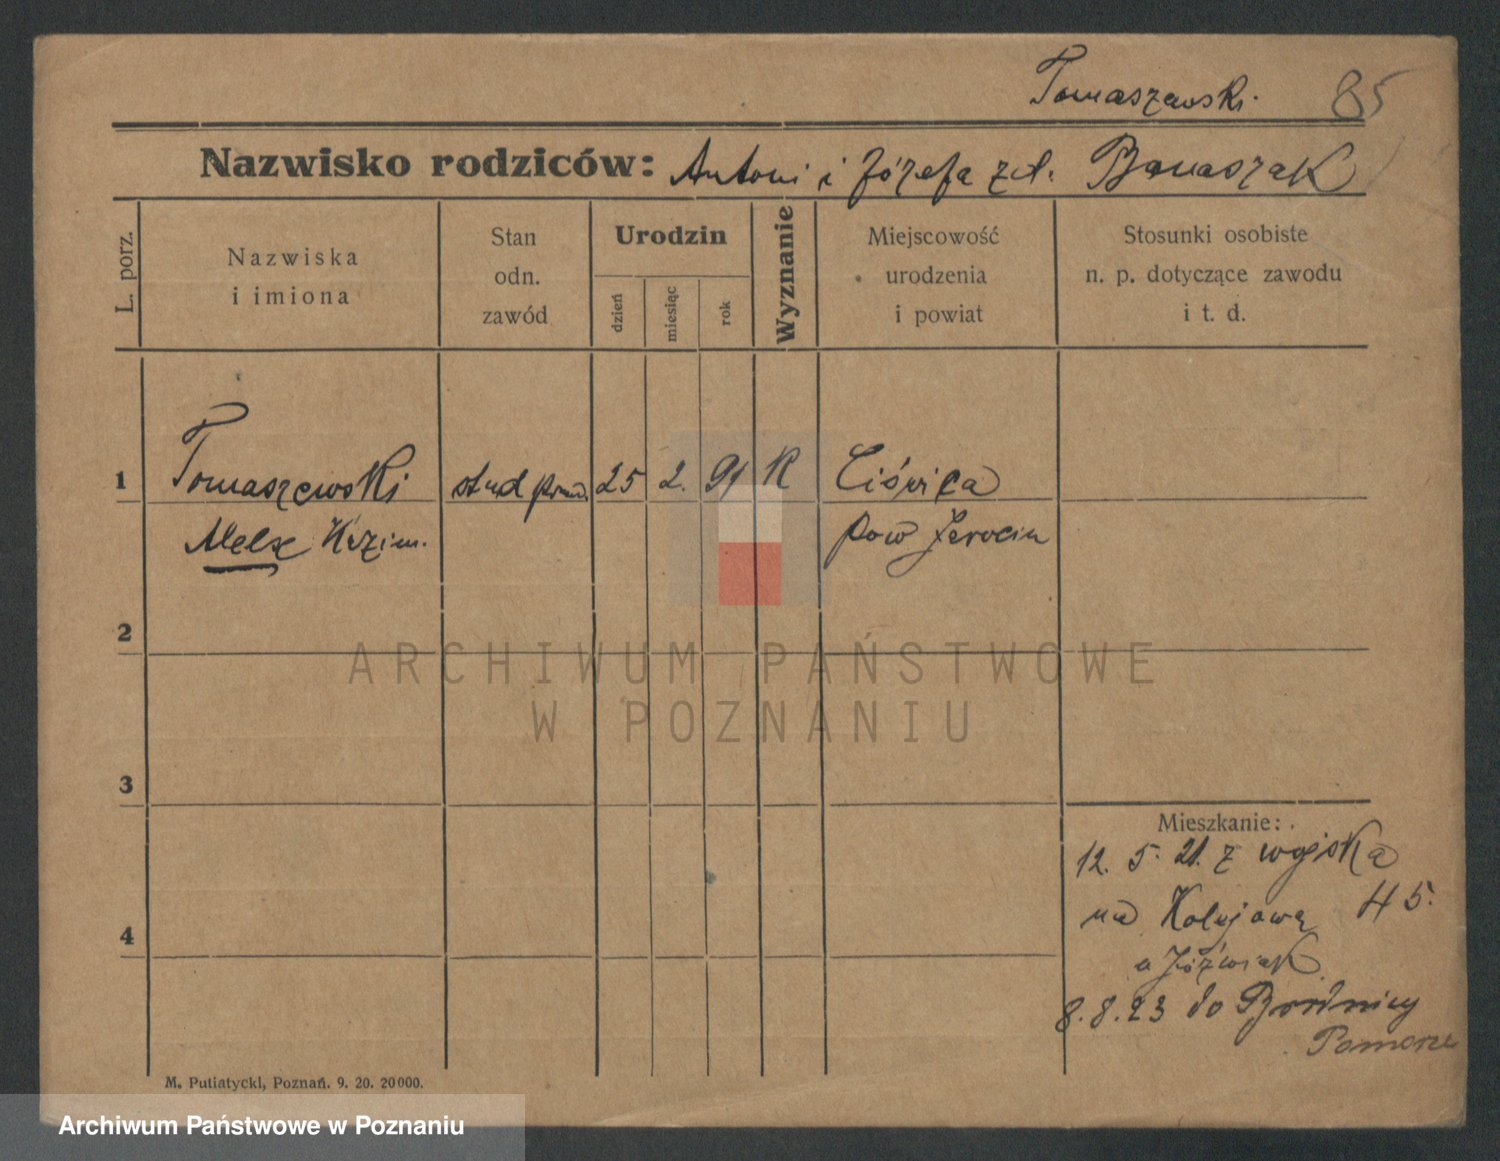 Tomaszewski. 85
Nazwisko rodziców: Antoni i Józefa zd. Banaszak
L. porz.
Nazwiska
i imiona
Stan
odn.
zawód
Urodzin
dzień
miesiąc
rok
Wyznanie
Miejscowość
urodzenia
i powiat
Stosunki osobiste
n. p. dotyczące zawodu
i t. d.
1 Tomaszewski stud 25 2. 91 K Ciświca
Aleks Kazim. pow Jarocin
2
3
4
Mieszkanie:
12. 5. 21. z wojska
na Kolejową 45.
u Jóźwiak
8.8.23 do Brodnicy
Pomorze
M. Putiatycki, Poznań. 9. 20. 20000.
ARCHIWUM PAŃSTWOWE
W POZNANIU
Archiwum Państwowe w Poznaniu